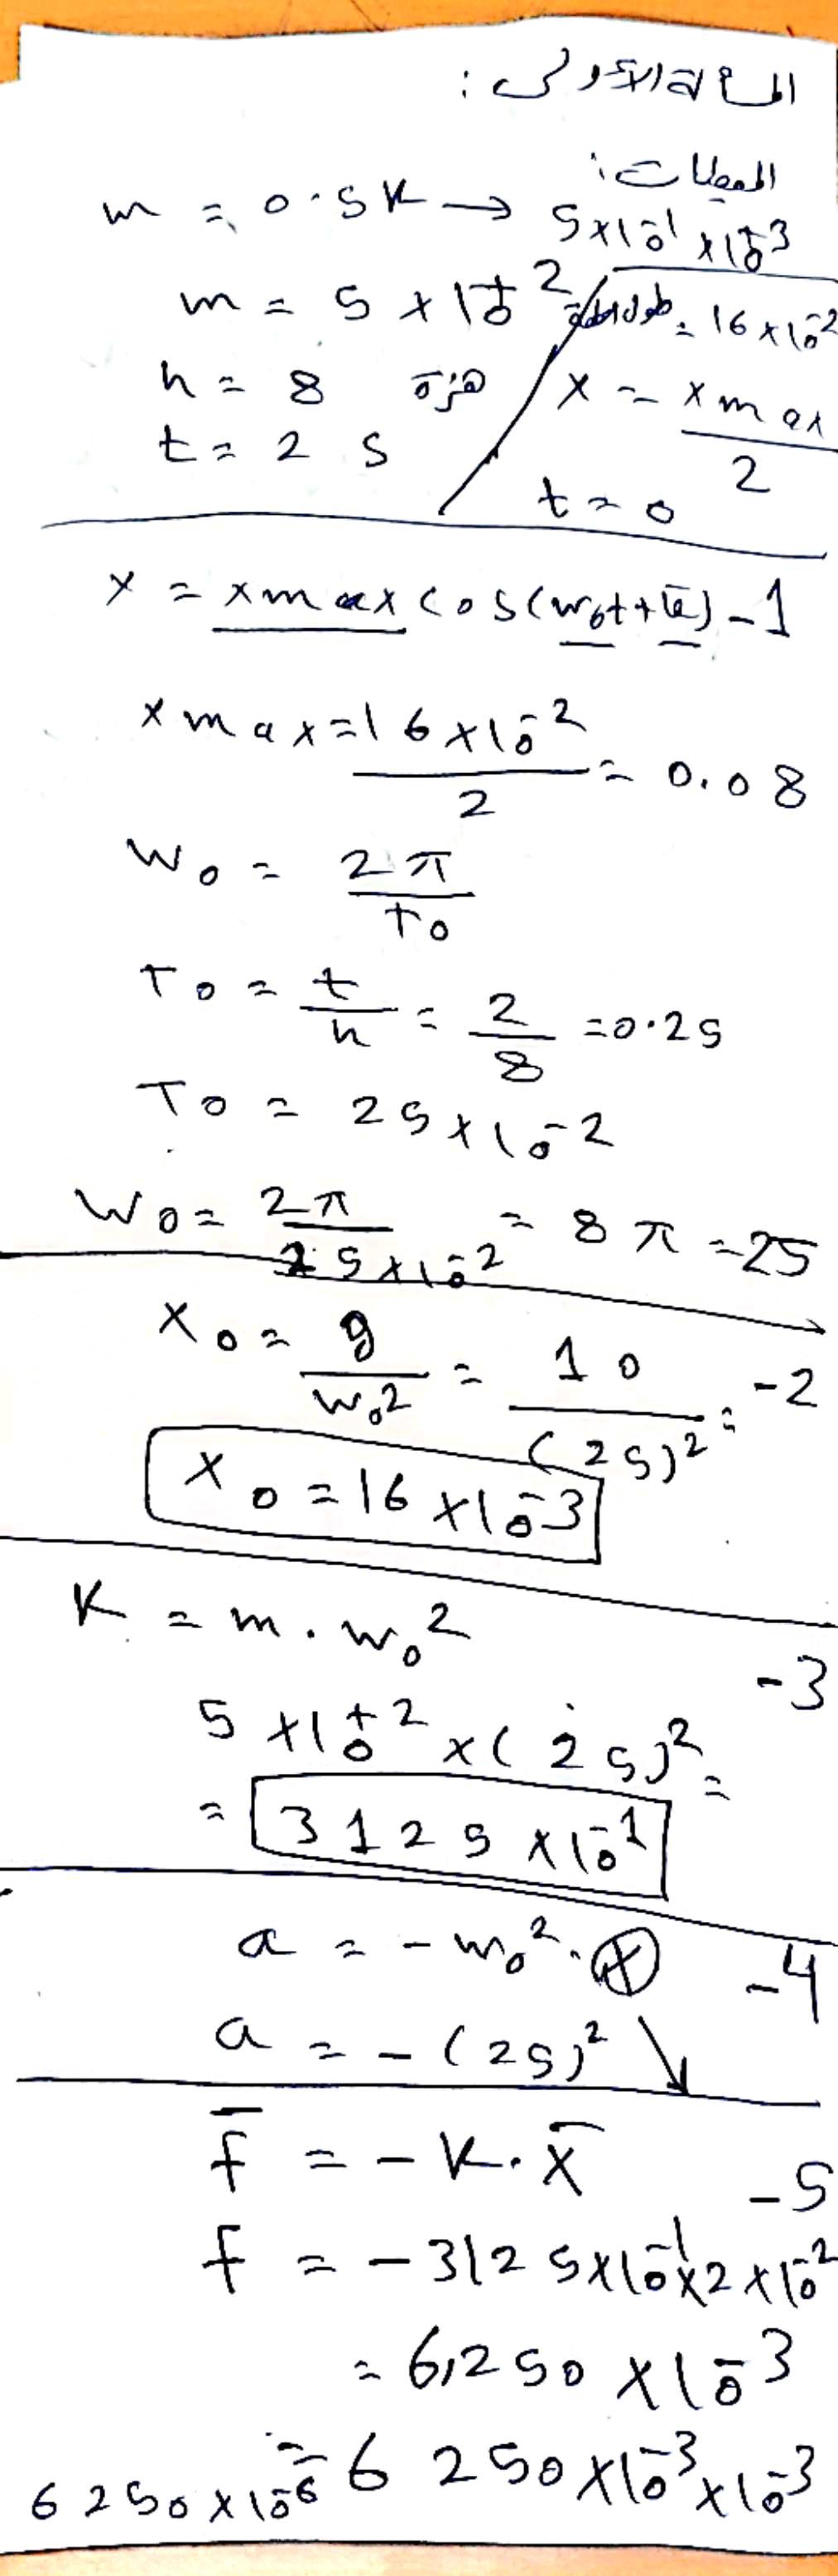 المسألة الأولى:
المعطيات:
m = 0.5 K → 5×10⁻¹ × 10⁺³
m = 5 × 10⁺²
طول القطعة = 16 × 10⁻²
n = 8 هزة
x = xmax / 2
t = 2 s
t = 0
x = xmax cos(w₀t + φ̄) -1
xmax = 16×10⁻² / 2 = 0.08
w₀ = 2π / T₀
T₀ = t / n = 2 / 8 = 0.25
T₀ = 25 × 10⁻²
w₀ = 2π / 25×10⁻² = 8π = 25
x₀ = g / w₀² = 10 / (25)² = -2
x₀ = 16 × 10⁻³
K = m . w₀²
-3
5 × 10⁺² × (25)² =
= 3125 × 10⁻¹
a = - w₀² . x -4
a = - (25)²
f̄ = - K . x̄ -5
f = - 3125×10⁻¹ × 2 × 10⁻²
= 6,250 × 10⁻³
= 6250 × 10⁻³ × 10⁻³
6250 × 10⁻⁶